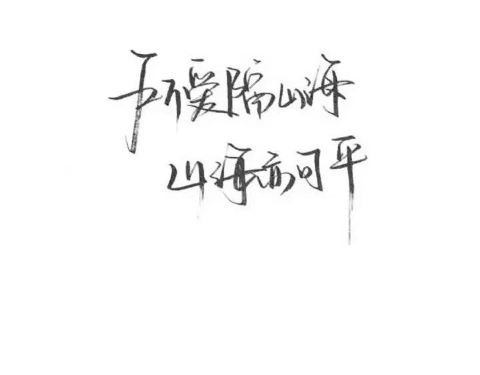 吾爱隔山海
山海亦可平